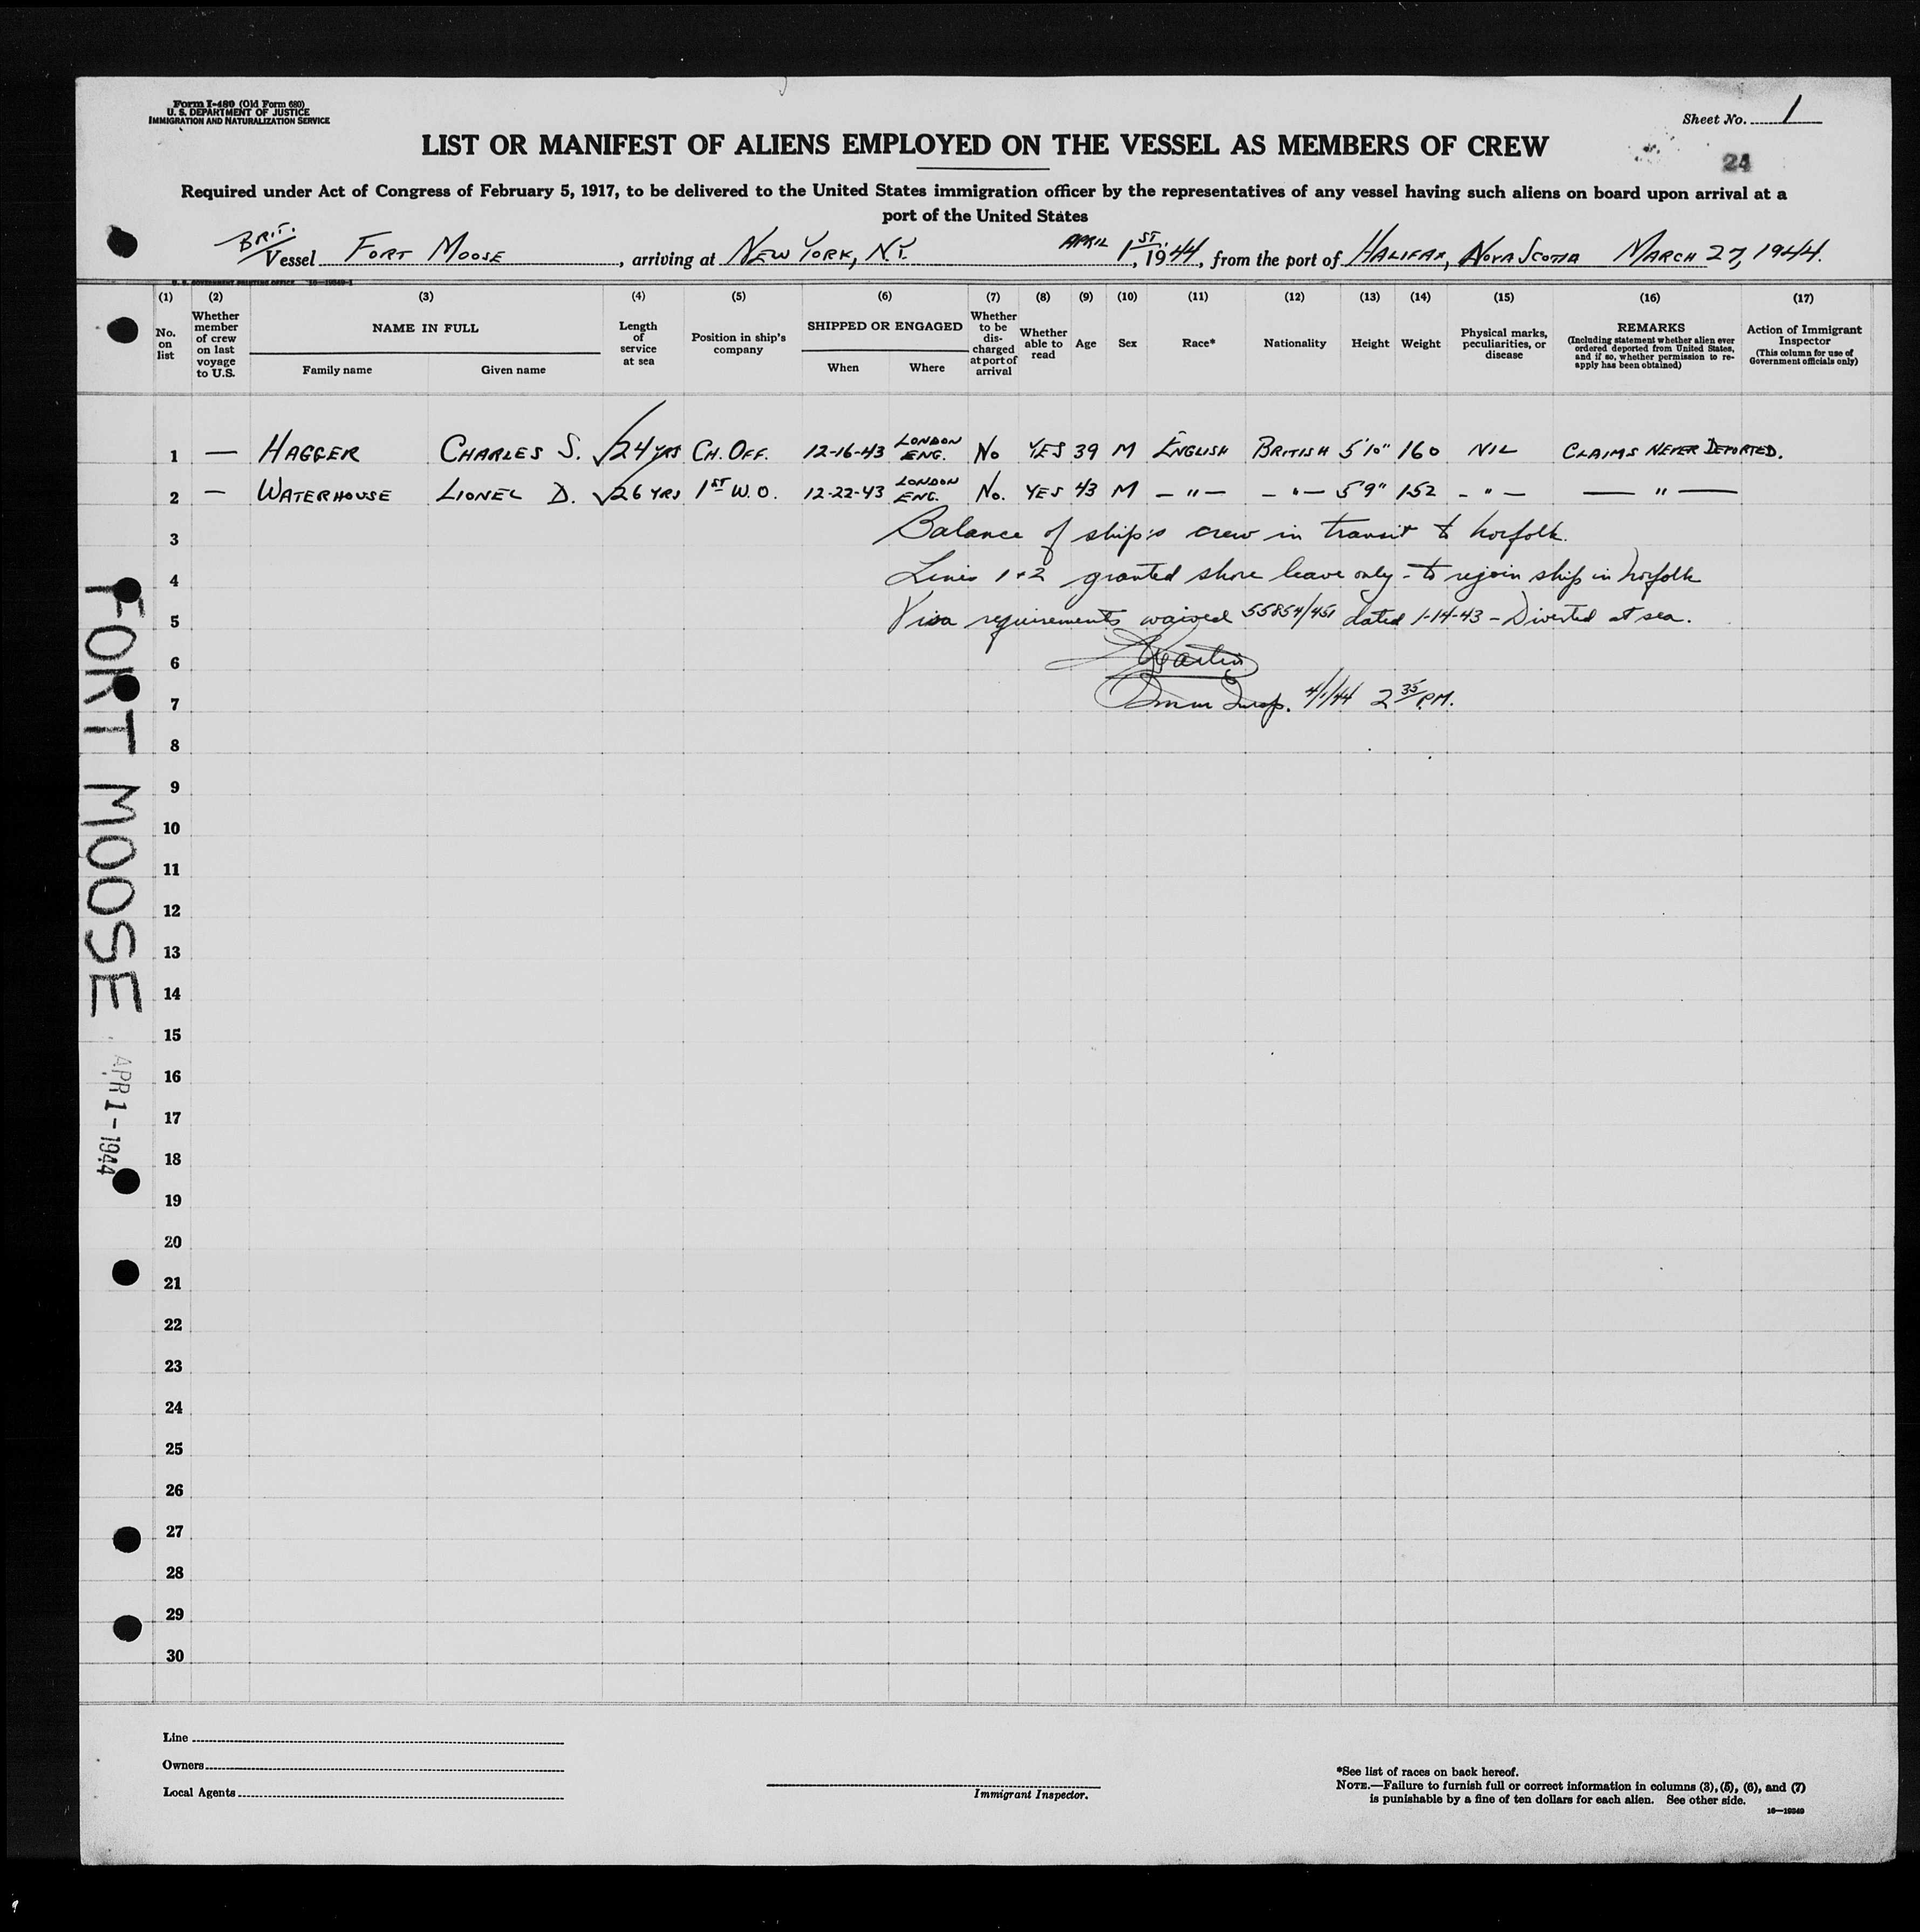 Form I-480 (Old Form 680)
U. S. DEPARTMENT OF JUSTICE
IMMIGRATION AND NATURALIZATION SERVICE
Sheet No. 1
LIST OR MANIFEST OF ALIENS EMPLOYED ON THE VESSEL AS MEMBERS OF CREW
24
Required under Act of Congress of February 5, 1917, to be delivered to the United States immigration officer by the representatives of any vessel having such aliens on board upon arrival at a
port of the United States
BRIT.
Vessel FORT MOOSE, arriving at NEW YORK, N.Y. APRIL 1ST, 1944, from the port of HALIFAX, NOVA SCOTIA MARCH 27, 1944.
U. S. GOVERNMENT PRINTING OFFICE 16—19349-1
(1) (2) (3) (4) (5) (6) (7) (8) (9) (10) (11) (12) (13) (14) (15) (16) (17)
No. on list
Whether member of crew on last voyage to U.S.
NAME IN FULL
Family name
Given name
Length of service at sea
Position in ship's company
SHIPPED OR ENGAGED
When
Where
Whether to be discharged at port of arrival
Whether able to read
Age
Sex
Race*
Nationality
Height
Weight
Physical marks, peculiarities, or disease
REMARKS
(Including statement whether alien ever ordered deported from United States, and if so, whether permission to reapply has been obtained)
Action of Immigrant Inspector
(This column for use of Government officials only)
1 — HAGGER CHARLES S. √24 YRS CH. OFF. 12-16-43 LONDON ENG. NO YES 39 M ENGLISH BRITISH 5'10" 160 NIL CLAIMS NEVER DEPORTED.
2 — WATERHOUSE LIONEL D. √26 YRS 1ST W.O. 12-22-43 LONDON ENG. NO. YES 43 M — " — — " — 5'9" 152 — " — — " —
3 Balance of ship's crew in transit to Norfolk.
4 Lines 1 + 2 granted shore leave only - to rejoin ship in Norfolk
5 Visa requirements waived 55854/451 dated 1-14-43 - Diverted at sea.
6
7 Imm Insp. 4/1/44 2 35 P.M.
8
9
10
11
12
13
14
15
16
17
18
19
20
21
22
23
24
25
26
27
28
29
30
FORT MOOSE
APR 1 - 1944
Line
Owners
Local Agents
Immigrant Inspector.
*See list of races on back hereof.
NOTE.—Failure to furnish full or correct information in columns (3), (5), (6), and (7)
is punishable by a fine of ten dollars for each alien. See other side.
16—19349